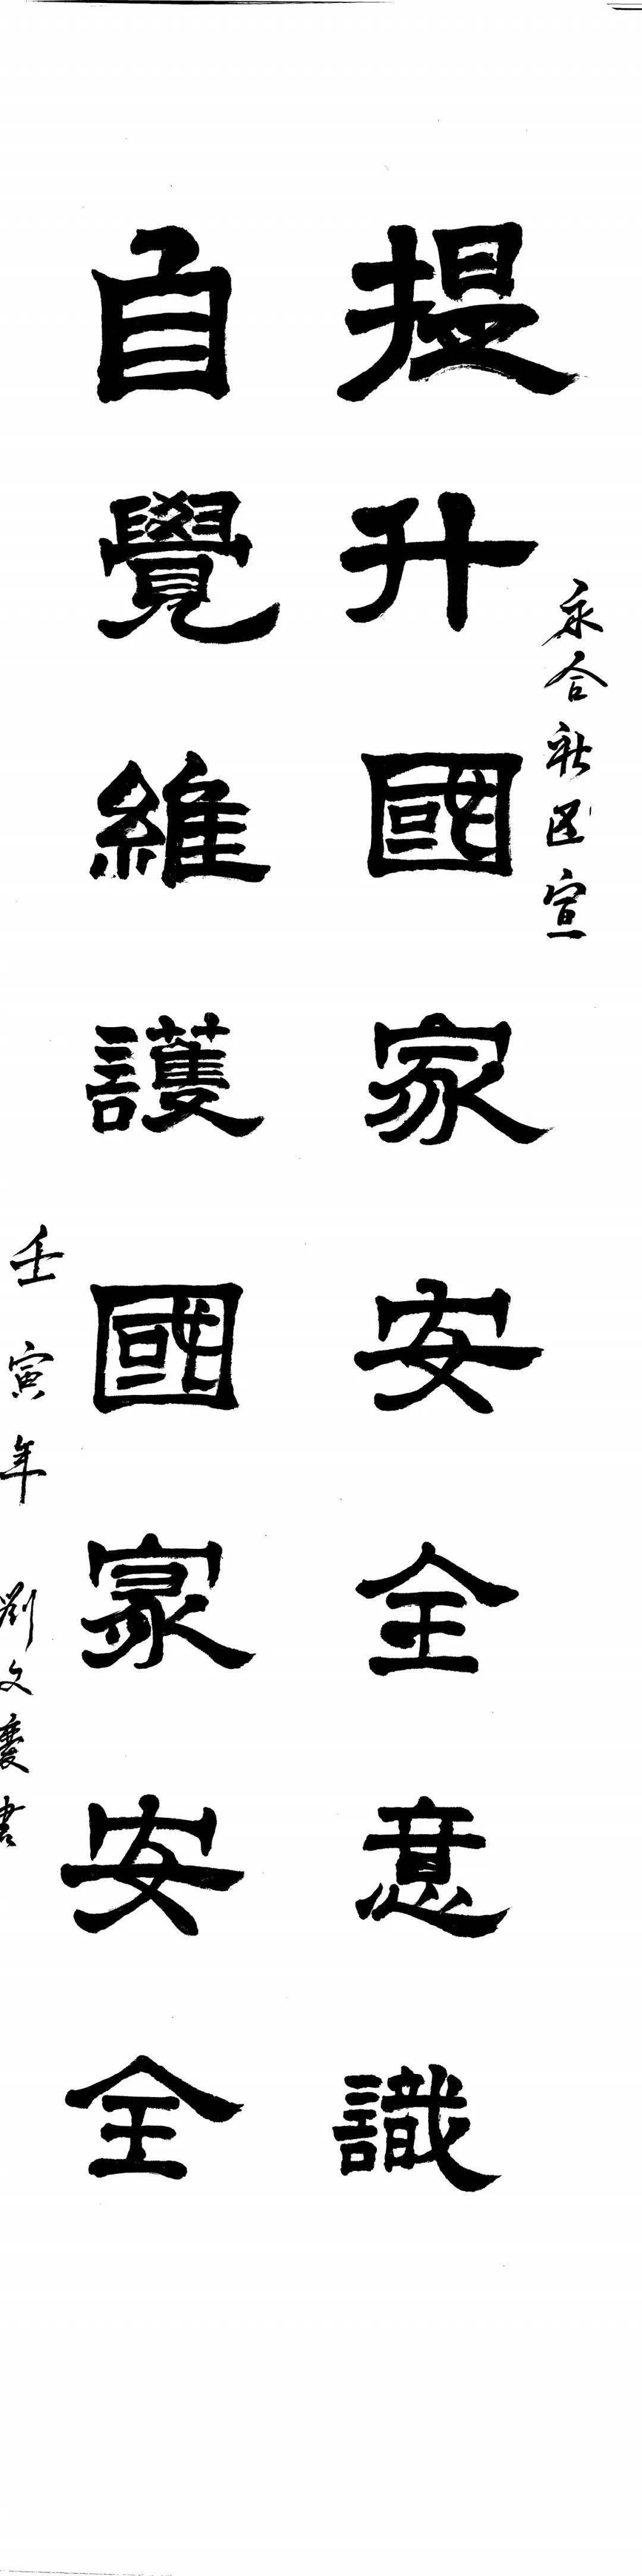 永合社区宣
提升國家安全意識
自覺維護國家安全
壬寅年 劉文慶書